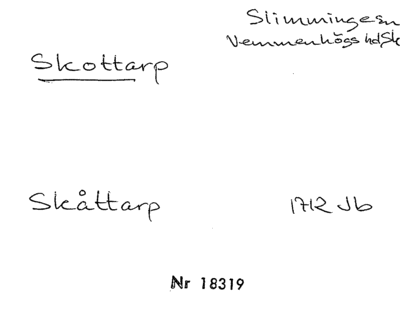 Slimminge sn
Vemmenhögs hd, Sk
Skottarp
Skåttarp 1712 Jb
Nr 18319